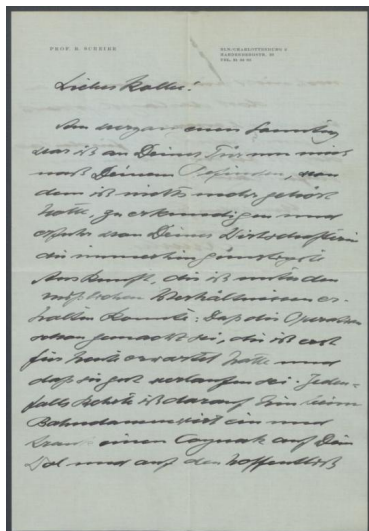 PROF. R. SCHEIBE
BLN.-CHARLOTTENBURG 2
HARDENBERGSTR. 33
TEL.
Lieber Kolbe!
Am vergangenen Samstag
war ich an Deiner Tür um mich
nach Deinem Befinden, von
dem ich nichts mehr gehört
hatte, zu erkundigen und
erfuhr von Deiner Wirtschafterin
die immerhin günstigste
Auskunft, die ich unter den
möglichen Verhältnissen er-
halten konnte: Daß die Operation
schon gemacht sei, die ich erst
für heute erwartet hatte und
daß sie gut verlaufen sei. Jeden-
falls kehrte ich darauf hin beim
Bahndammwirt ein und
trank einen Cognak auf Dein
Wohl und auf den hoffentlich